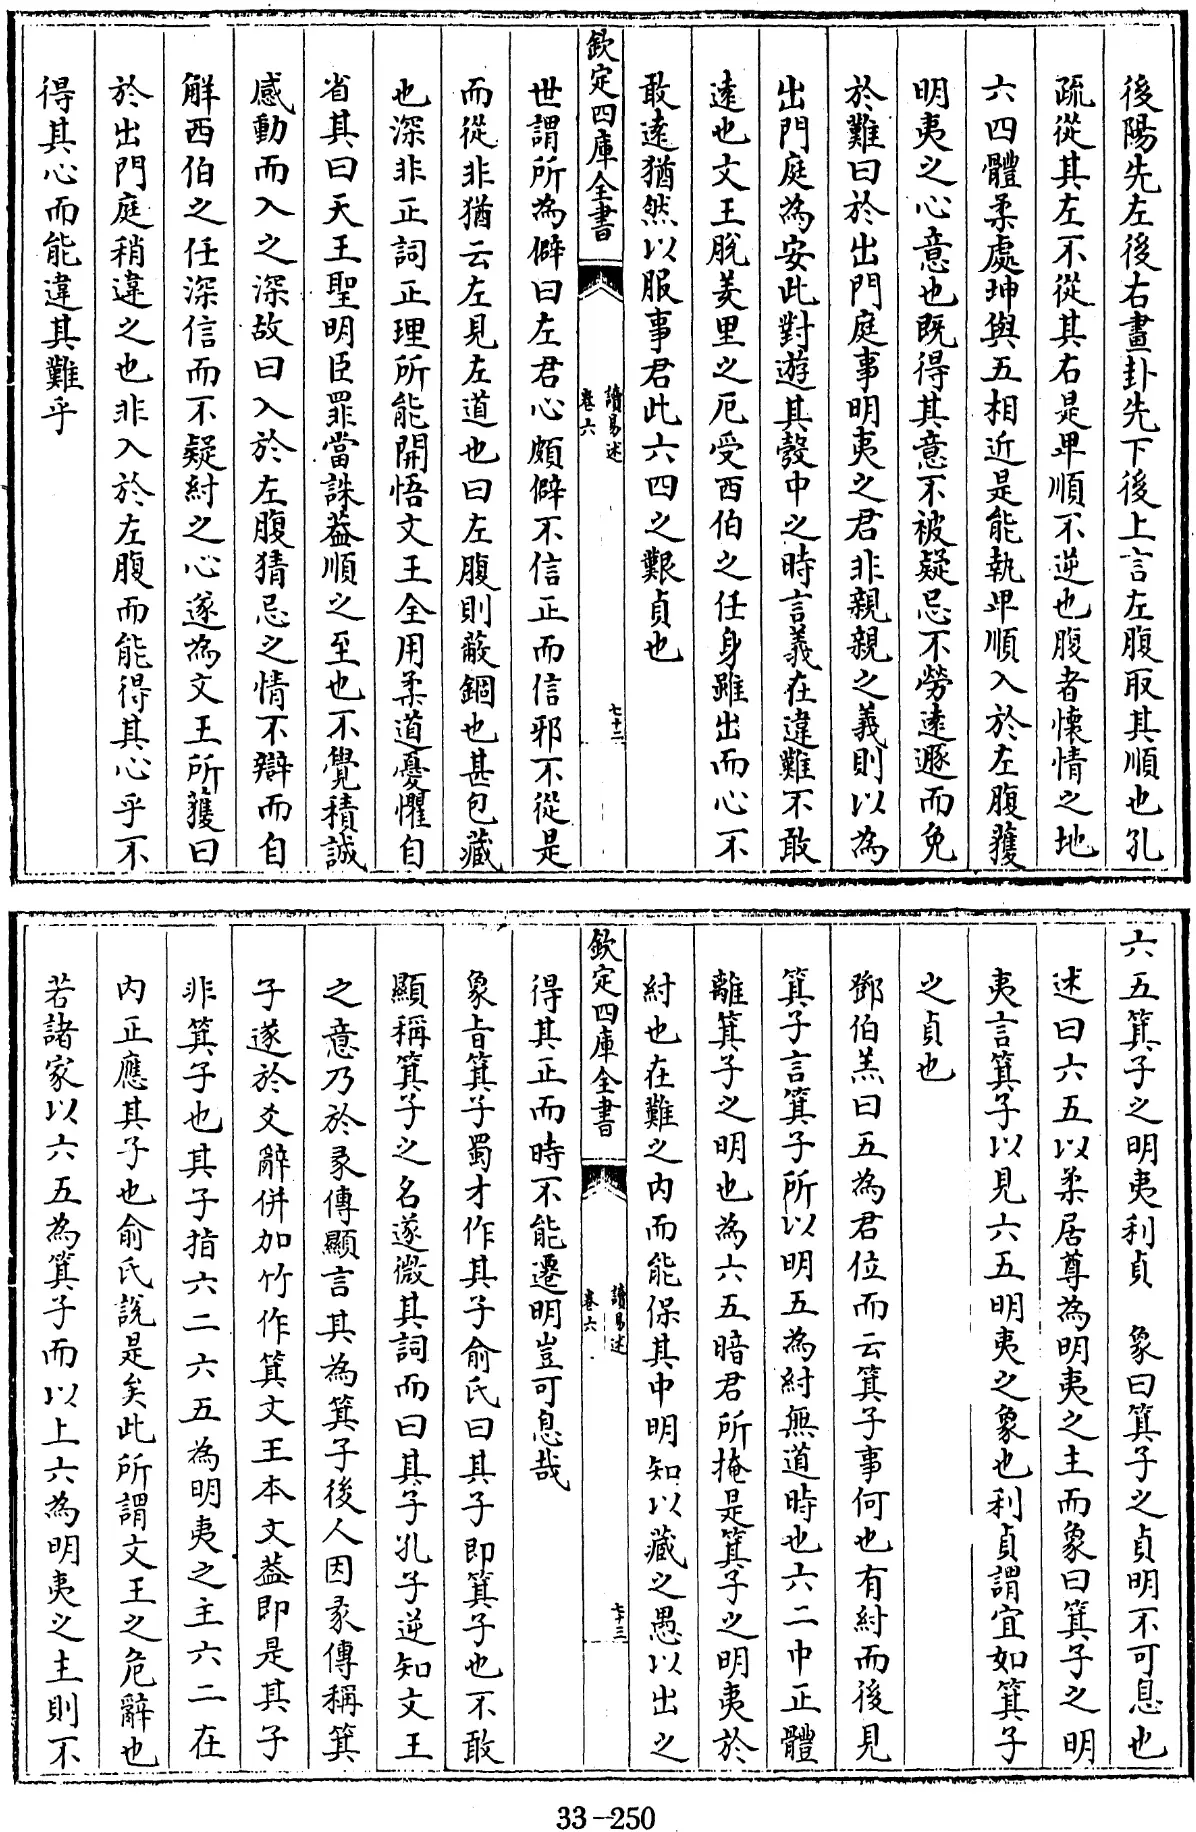 後陽先左後右畫卦先下後上言左腹取其順也孔
疏從其左不從其右是卑順不逆也腹者懷情之地
六四體柔處坤與五相近是能執卑順入於左腹獲
明夷之心意也既得其意不被疑忌不勞遠遯而免
於難曰於出門庭事明夷之君非親親之義則以為
出門庭為安此對遊其彀中之時言義在違難不敢
遠也文王脫羑里之厄受西伯之任身雖出而心不
敢遠猶然以服事君此六四之艱貞也
欽定四庫全書
讀易述
卷六
七十二
世謂所為僻曰左君心頗僻不信正而信邪不從是
而從非猶云左見左道也曰左腹則蔽錮也甚包藏
也深非正詞正理所能開悟文王全用柔道憂懼自
省其曰天王聖明臣罪當誅葢順之至也不覺積誠
感動而入之深故曰入於左腹猜忌之情不辯而自
解西伯之任深信而不疑紂之心遂為文王所獲曰
於出門庭稍違之也非入於左腹而能得其心乎不
得其心而能違其難乎
六五箕子之明夷利貞 象曰箕子之貞明不可息也
述曰六五以柔居尊為明夷之主而象曰箕子之明
夷言箕子以見六五明夷之象也利貞謂宜如箕子
之貞也
鄧伯羔曰五為君位而云箕子事何也有紂而後見
箕子言箕子所以明五為紂無道時也六二中正體
離箕子之明也為六五暗君所掩是箕子之明夷於
紂也在難之内而能保其中明知以藏之愚以出之
欽定四庫全書
讀易述
卷六
七十三
得其正而時不能遷明豈可息哉
象旨箕子蜀才作其子俞氏曰其子即箕子也不敢
顯稱箕子之名遂微其詞而曰其子孔子逆知文王
之意乃於彖傳顯言其為箕子後人因彖傳稱箕
子遂於爻辭併加竹作箕文王本文葢即是其子
非箕子也其子指六二六五為明夷之主六二在
内正應其子也俞氏說是矣此所謂文王之危辭也
若諸家以六五為箕子而以上六為明夷之主則不
33-250